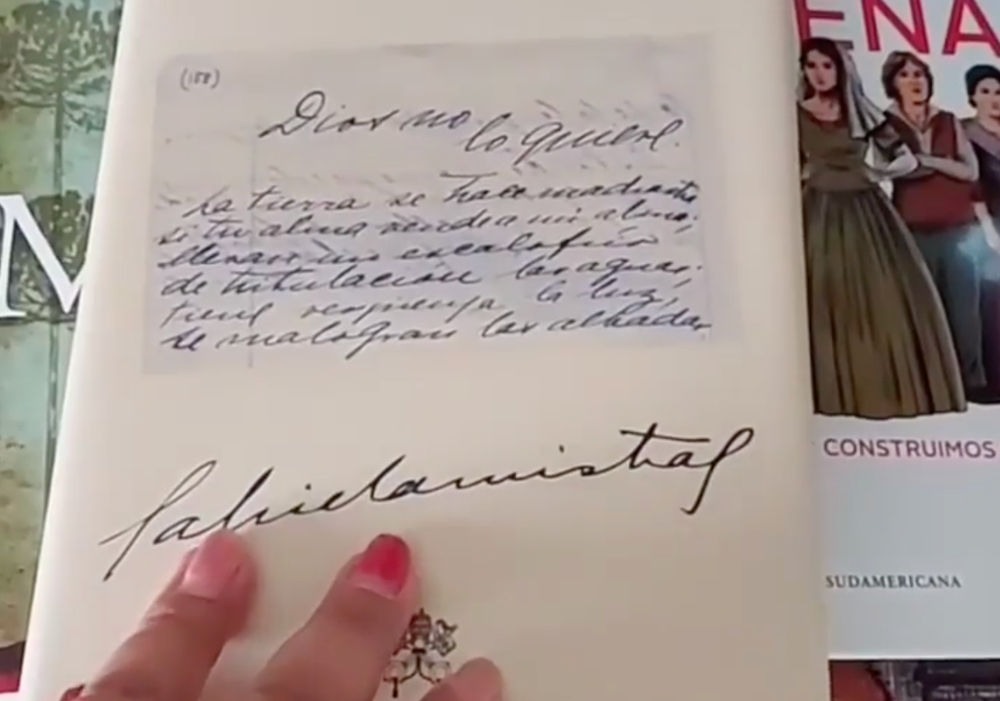 (158)
Dios no
lo quiere.
La tierra se hace madrastra
si tu alma vende a mi alma.
Llevan un escalofrío
de tribulación las aguas.
la luz,
se malogran las
Gabrielamistral
M
ENA
CONSTRUIMOS
SUDAMERICANA